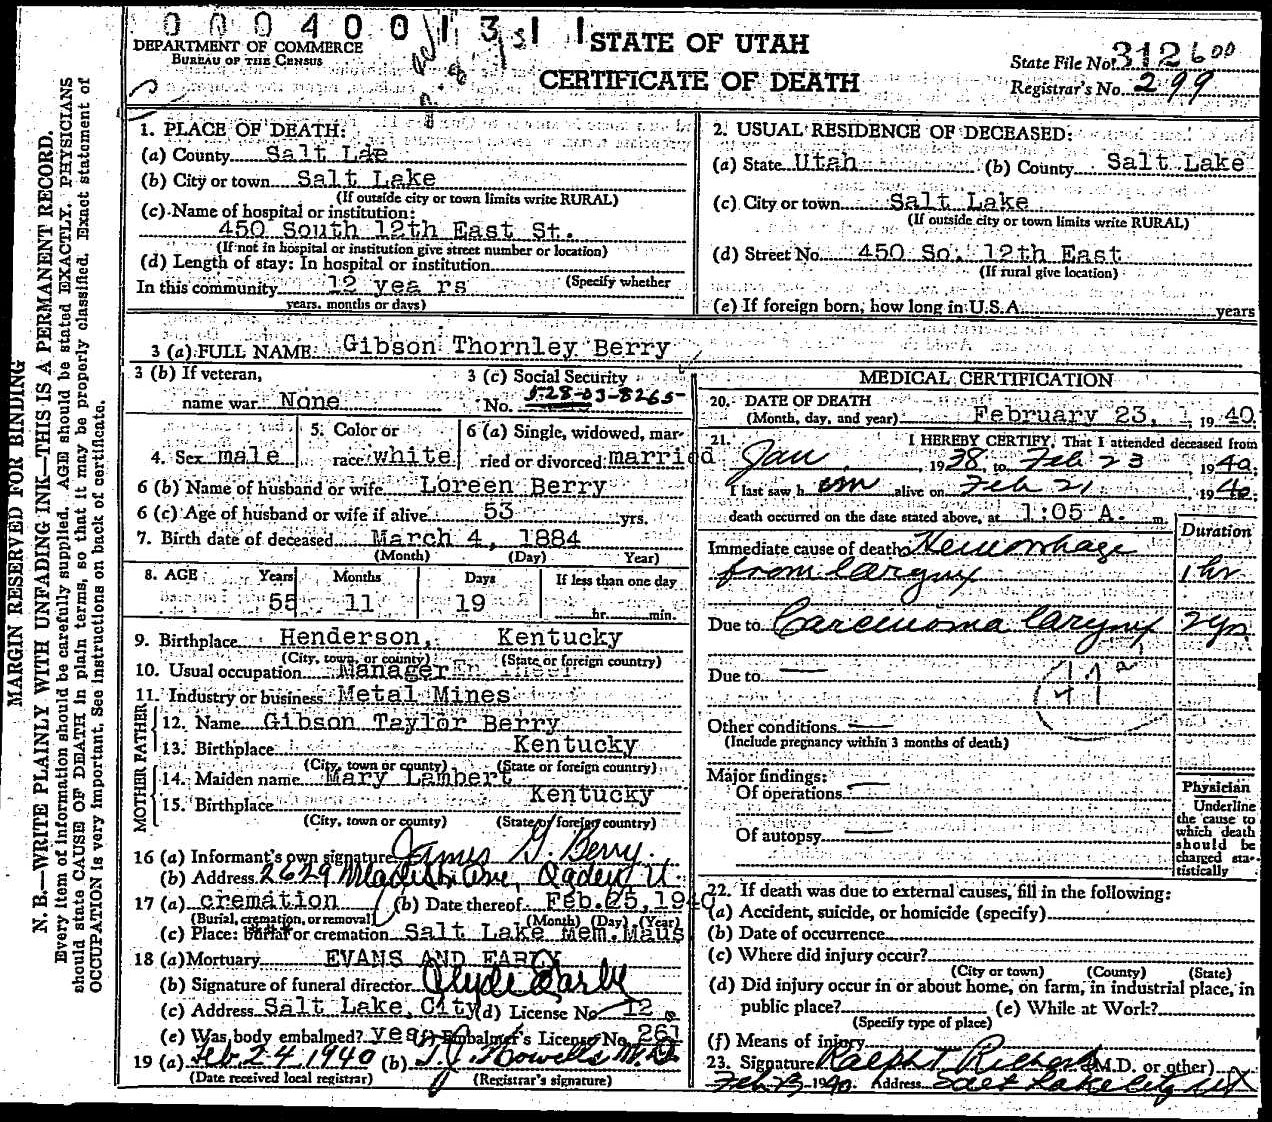 0004001311
DEPARTMENT OF COMMERCE
BUREAU OF THE CENSUS
STATE OF UTAH
CERTIFICATE OF DEATH
State File No. 312 600
Registrar's No. 299
MARGIN RESERVED FOR BINDING
N. B.—WRITE PLAINLY WITH UNFADING INK—THIS IS A PERMANENT RECORD.
Every item of information should be carefully supplied. AGE should be stated EXACTLY. PHYSICIANS
should state CAUSE OF DEATH in plain terms, so that it may be properly classified. Exact statement of
OCCUPATION is very important. See instructions on back of certificate.
1. PLACE OF DEATH:
(a) County Salt Lae
(b) City or town Salt Lake
(If outside city or town limits write RURAL)
(c) Name of hospital or institution:
450 South 12th East St.
(If not in hospital or institution give street number or location)
(d) Length of stay: In hospital or institution
(Specify whether
In this community 12 yea rs
years, months or days)
2. USUAL RESIDENCE OF DECEASED:
(a) State Utah (b) County Salt Lake
(c) City or town Salt Lake
(If outside city or town limits write RURAL)
(d) Street No. 450 So. 12th East
(If rural give location)
(e) If foreign born, how long in U.S.A. years
3 (a) FULL NAME: Gibson Thornley Berry
3 (b) If veteran,
name war None
3 (c) Social Security
No. 528-03-8265
4. Sex male
5. Color or
race white
6 (a) Single, widowed, mar-
ried or divorced married
6 (b) Name of husband or wife Loreen Berry
6 (c) Age of husband or wife if alive 53 yrs.
7. Birth date of deceased March 4, 1884
(Month) (Day) Year)
8. AGE Years Months Days If less than one day
55 11 19 hr. min.
9. Birthplace Henderson, Kentucky
(City, town, or county) (State or foreign country)
10. Usual occupation Manager
11. Industry or business Metal Mines
FATHER
12. Name Gibson Taylor Berry
13. Birthplace Kentucky
(City, town or county) (State or foreign country)
MOTHER
14. Maiden name Mary Lambert
15. Birthplace Kentucky
(City, town or county) (State or foreign country)
16 (a) Informant's own signature James G. Berry
(b) Address 2629 Ave, Ogden U.
17 (a) cremation (b) Date thereof Feb. 25, 1940
(Burial, cremation, or removal) (Month) (Day) (Year)
(c) Place: burial or cremation Salt Lake Mem. Maus
18 (a) Mortuary EVANS AND EARLY
(b) Signature of funeral director Clyde Early
(c) Address Salt Lake City (d) License No. 12
(e) Was body embalmed? yes (f) Embalmer's License No. 261
19 (a) Feb 24 1940 (b) T.J. Howells M.D.
(Date received local registrar) (Registrar's signature)
MEDICAL CERTIFICATION
20. DATE OF DEATH
(Month, day, and year) February 23, 1940
21. I HEREBY CERTIFY, That I attended deceased from
Jan, 1938, to Feb 23, 1940.
I last saw h im alive on Feb 21, 1940.
death occurred on the date stated above, at 1:05 A. m.
Duration
Immediate cause of death Hemorrhage
from larynx 1 hr
Due to Carcinoma larynx 2 yrs
Due to —
Other conditions —
(Include pregnancy within 3 months of death)
Major findings:
Of operations —
Of autopsy —
Physician
Underline
the cause to
which death
should be
charged sta-
tistically
22. If death was due to external causes, fill in the following:
(a) Accident, suicide, or homicide (specify)
(b) Date of occurrence
(c) Where did injury occur?
(City or town) (County) (State)
(d) Did injury occur in or about home, on farm, in industrial place, in
public place? (e) While at Work?
(Specify type of place)
(f) Means of injury
23. Signature Ralph T Richards (M.D. or other)
Feb 23 1940. Address Salt Lake City Ut